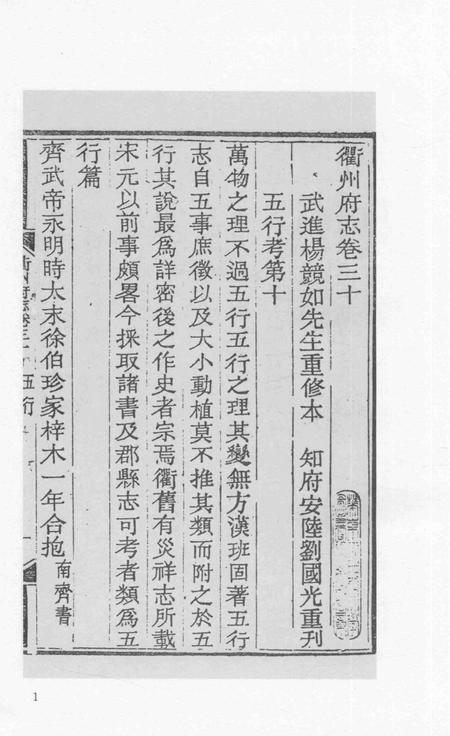 衢州府志卷三十
武進楊競如先生重修本 知府安陸劉國光重刊
五行考第十
萬物之理不過五行五行之理其變無方漢班固著五行
志自五事庶徵以及大小動植莫不推其類而附之於五
行其說最爲詳密後之作史者宗焉衢舊有災祥志所載
宋元以前事頗畧今採取諸書及郡縣志可考者類爲五
行篇
齊武帝永明時太末徐伯珍家梓木一年合抱南齊書
五行
1